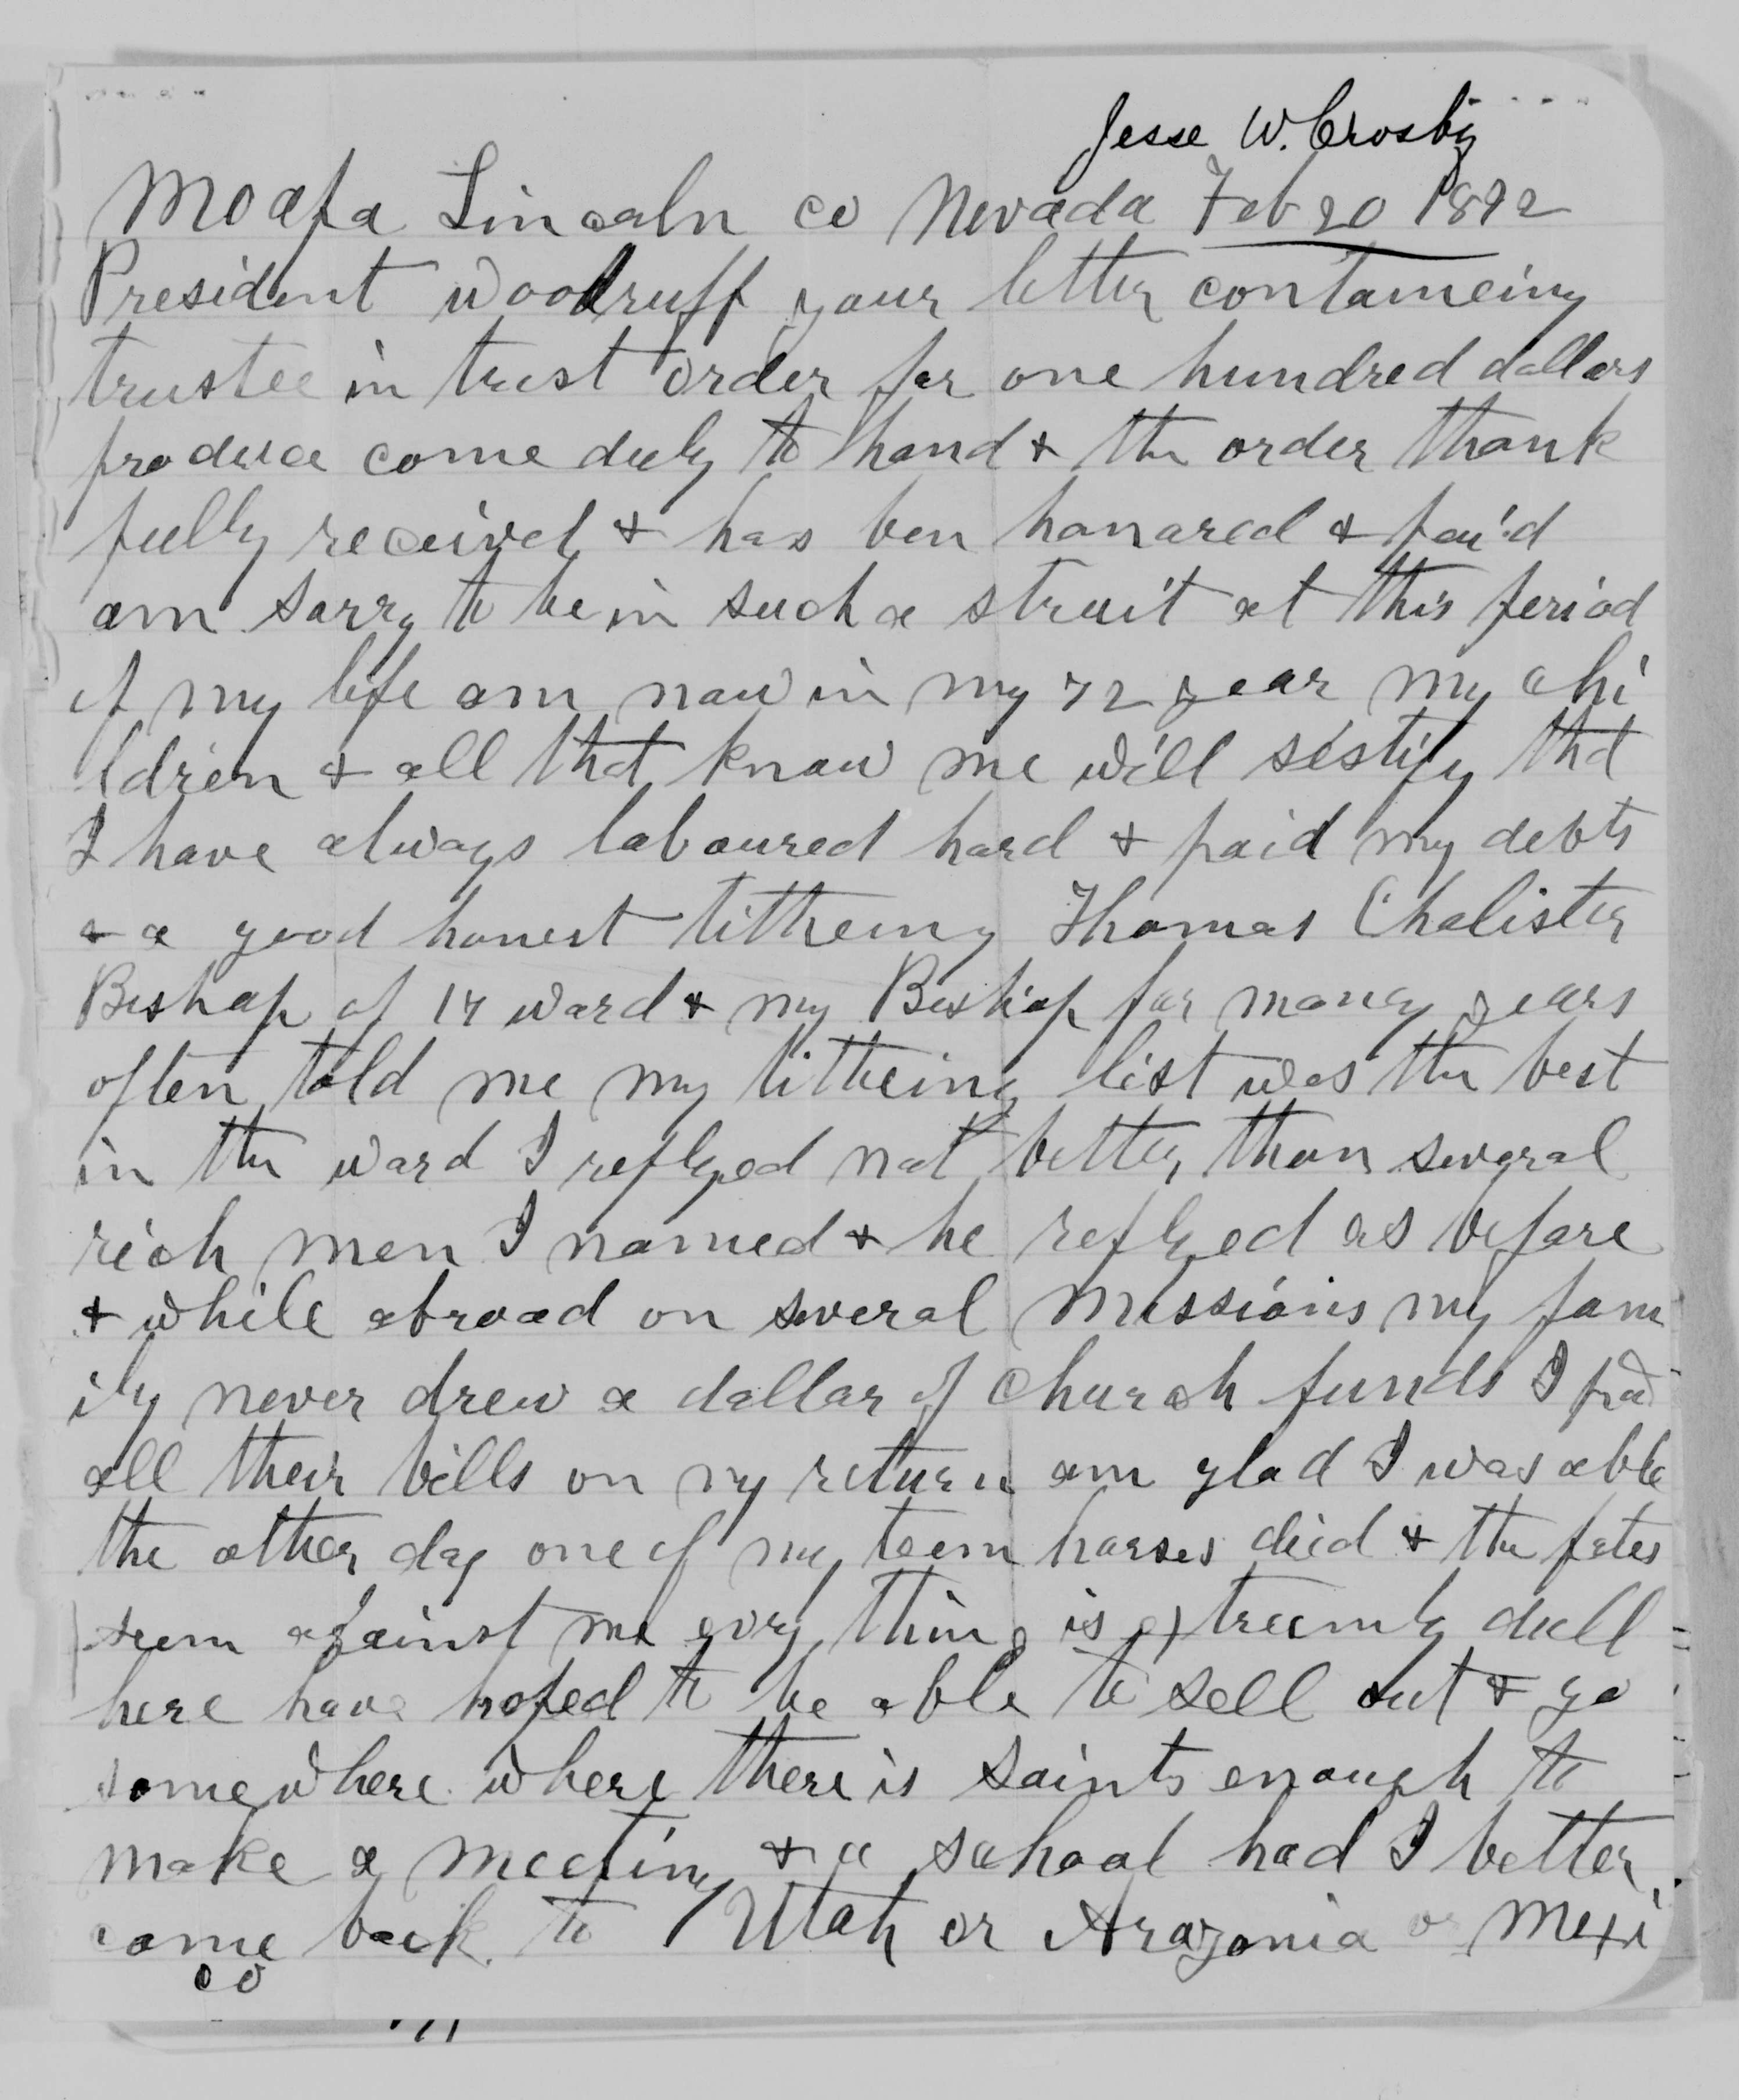 Jesse W. Crosby
Moapa Lincoln co Nevada Feb 20 1892
President Woodruff your letter containeing
trustee in trust order for one hundred dollars
produce come duly to hand & the order thank
fully received & has ben honored & paid
am sorry to be in such a strait at this period
of my life am now in my 72 year my chi
ldren & all that know me will testify that
I have always laboured hard & paid my debts
& a good honest titheing Thomas Chalister
Bishop of 17 ward & my Bishop for maney years
often told me my titheing list was the best
in the ward I replyed not better than several
rich men I named & he replyed as before
& while abroad on several missions my fam
ily never drew a dollar of church funds I paid
all their bills on my return am glad I was able
the other day one of my team horses died & the fates
seem against me evry thing is extreemly dull
here have hoped to be able to sell out & go
somewhere where there is saints enough to
make a meeting & a school had I better
come back to Utah or Arazonia or Mexi
co